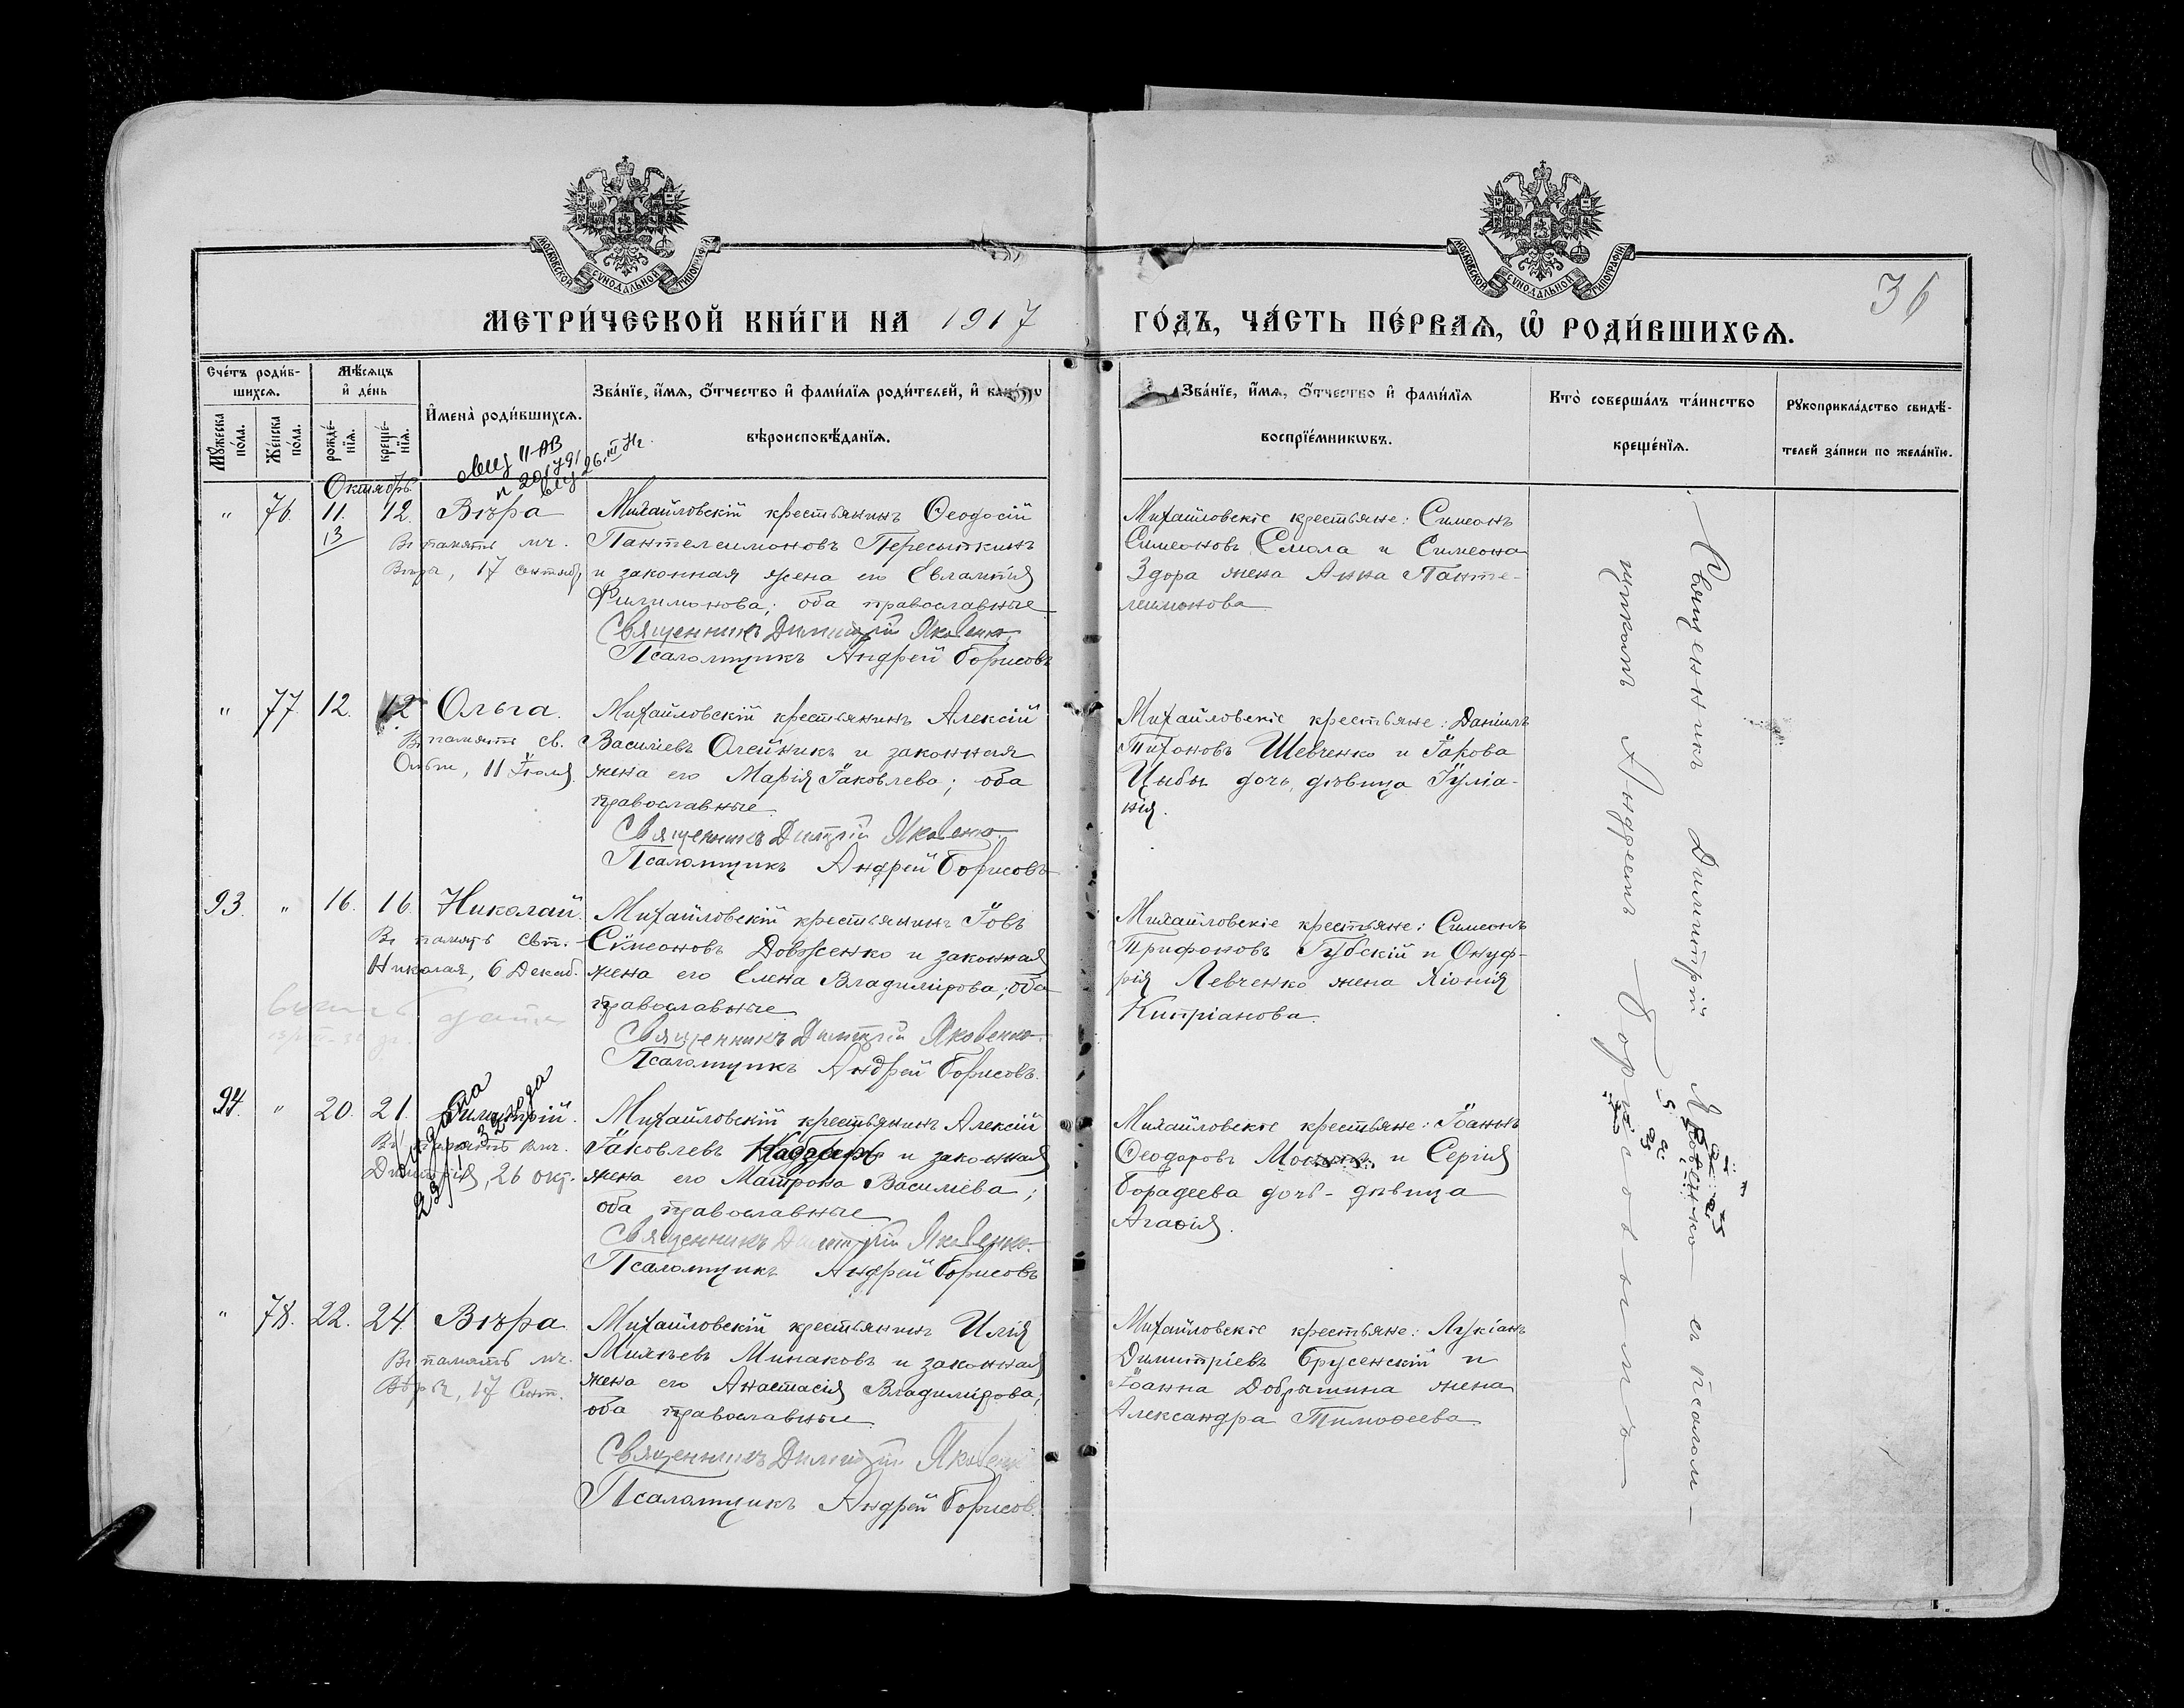 МОСКОВСКОЙ СУНОДАЛЬНОЙ ТИПОГРАФІИ
МОСКОВСКОЙ СУНОДАЛЬНОЙ ТИПОГРАФІИ
36
МЕТРИ́ЧЕСКОЙ КНИ́ГИ НА 1917 ГО́ДЪ, ЧА́СТЬ ПЕ́РВАѦ, Ѽ РОДИ́ВШИХСѦ.
Сче́тъ роди́в-
шихсѧ.
Мѣ́сѧцъ
и҆ де́нь
Мꙋ́жеска
по́ла.
Же́нска
по́ла.
рожде́-
нїѧ.
креще́-
нїѧ.
И҆мена̀ роди́вшихсѧ.
Зва́нїе, и҆́мѧ, ѻ҆́тчество и҆ фами́лїѧ роди́телей, и҆
вѣроисповѣ́данїѧ.
Зва́нїе, и҆́мѧ, ѻ҆́тчество и҆ фами́лїѧ
воспрїе́мникѡвъ.
Кто̀ соверша́лъ та́инство
креще́нїѧ.
Рꙋкоприкла́дство свидѣ́-
телей за́писи по жела́нїю.
Октябрь
" 76. 11. 12. Вѣра
13
Въ память мч.
Вѣры, 17 сентяб,
Михайловскій крестьянинъ Ѳеодосій
Пантелеимоновъ Пересыпкинъ
и законная жена его Евлампія
Филимонова; оба православные
Священникъ Димитрій Яковенко
Псаломщикъ Андрей Борисовъ
Михайловскіе крестьяне: Симеонъ
Симеоновъ Смола и Симеона
Здора жена Анна Панте-
леимонова
" 77. 12. 12 Ольга.
Въ память св.
Ольги, 11 Іюля
Михайловскій крестьянинъ Алексій
Василіевъ Олейникъ и законная
жена его Марія Іаковлева; оба
православные
Священникъ Димитрій Яковенко.
Псаломщикъ Андрей Борисовъ
Михайловскіе крестьяне: Даніилъ
Тихоновъ Шевченко и Іакова
Цыбы дочь, дѣвица Іуліа-
нія.
93. " 16. 16. Николай.
Въ память свт.
Николая, 6 Декаб.
Михайловскій крестьянинъ Іовъ
Симеоновъ Довженко и законная
жена его Елена Владимірова; оба
православные
Священникъ Димитрій Яковенко.
Псаломщикъ Андрей Борисовъ.
Михайловскіе крестьяне: Симеонъ
Трифоновъ Губскій и Онуф-
рія Левченко жена Хіонія
Кипріанова.
94. " 20. 21. Димитрій.
Въ память вмч.
Димитрія, 26 окт.
Михайловскій крестьянинъ Алексій
Іаковлевъ и законная
жена его Матрона Василіева;
оба православные
Священникъ Димитрій Яковенко.
Псаломщикъ Андрей Борисовъ
Михайловскіе крестьяне: Іоаннъ
Ѳеодоровъ и Сергія
Борадеева дочь - дѣвица
Агаѳія.
" 78. 22. 24. Вѣра
Въ память мч.
Вѣры, 17 Сент.
Михайловскій крестьянинъ Илія
Михеевъ Минаковъ и законная
жена его Анастасія Владимірова;
оба православные
Священникъ Димитрій Яковенко
Псаломщикъ Андрей Борисовъ.
Михайловскіе крестьяне: Лукіанъ
Димитріевъ Брусенскій и
Іоанна Добрынина жена
Александра Тимоѳеева
Священникъ Димитрій Яковенко съ псалом-
щикомъ Андреемъ Борисовымъ